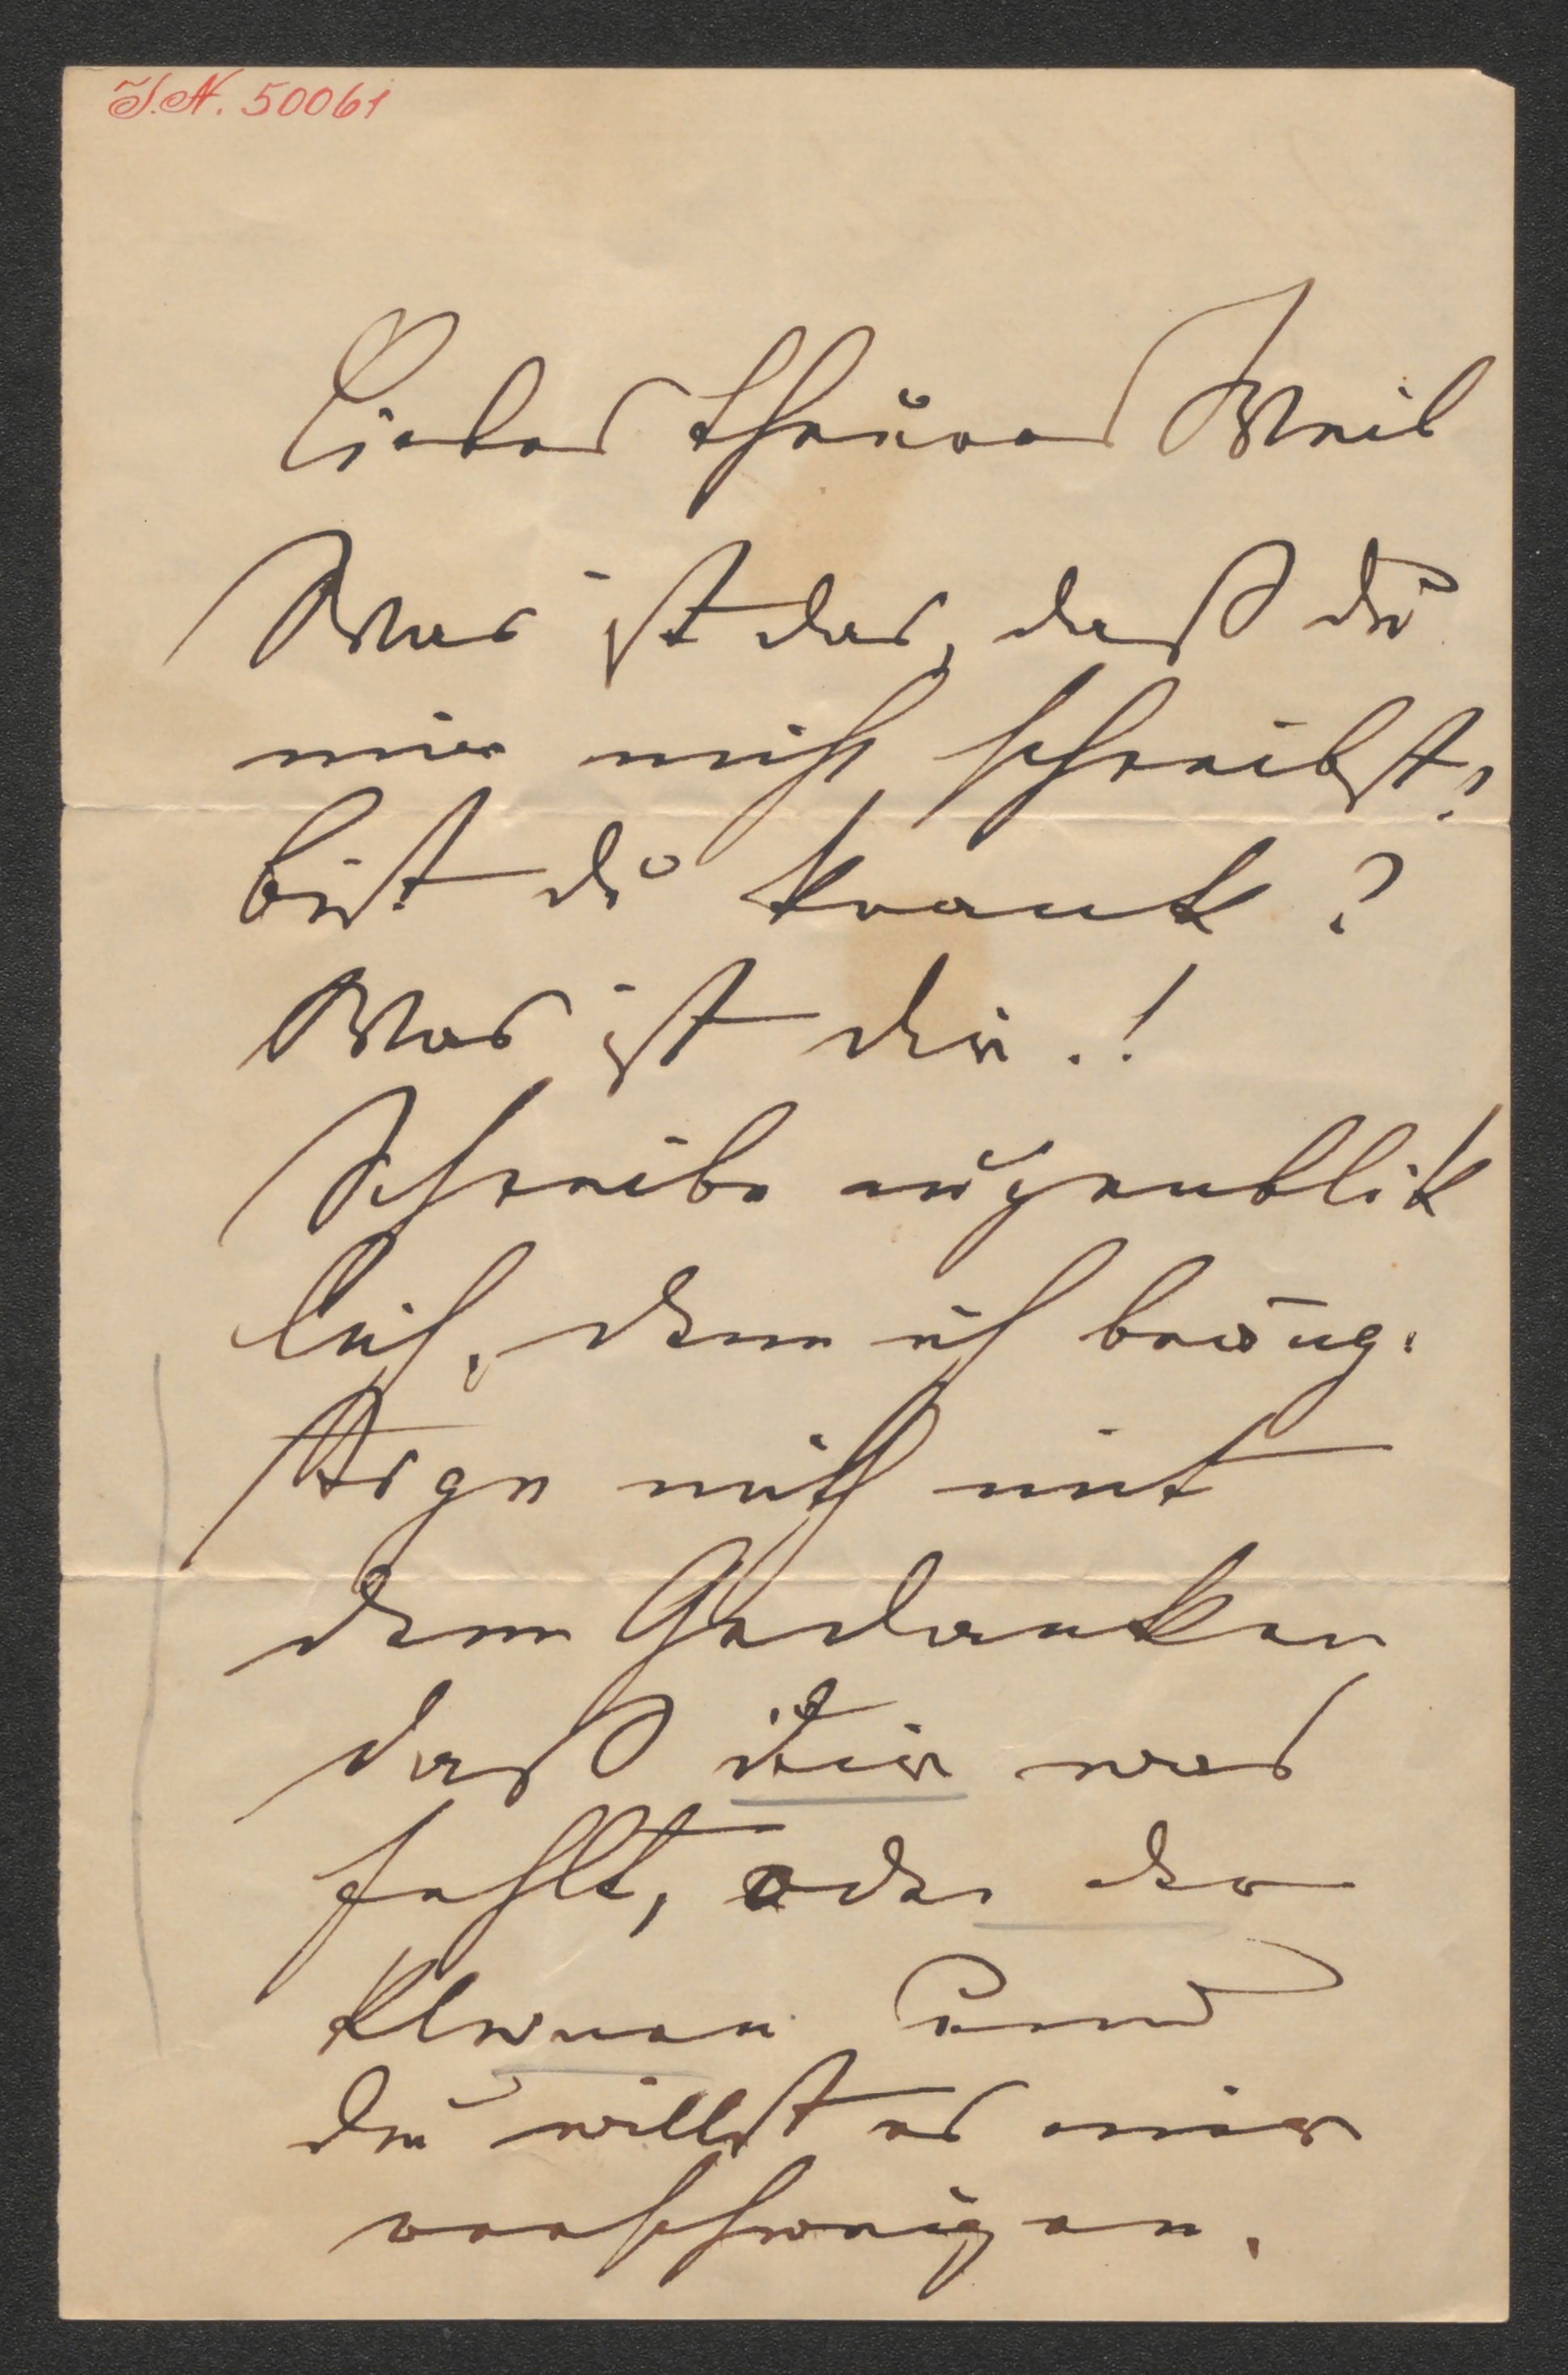 I.N. 50061
Liebes theures Weib
Was ist das, daß du
mir nicht schreibst?
bist du krank?
Was ist dir.!
Schreibe augenblik
lich, denn ich beäng-
stige mich mit
dem Gedanken
daß dir was
fehlt, oder der
Kleinen und
du willst es mir
verschweigen.